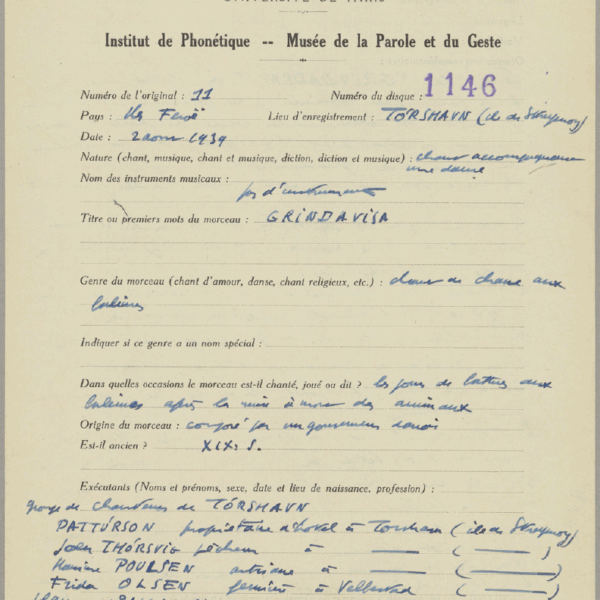 UNIVERSITÉ DE PARIS
Institut de Phonétique -- Musée de la Parole et du Geste
Numéro de l'original : 11 Numéro du disque : 1146
Pays : Iles Feroë Lieu d'enregistrement : TÓRSHAVN (île de Streymoy)
Date : 2 août 1939
Nature (chant, musique, chant et musique, diction, diction et musique) : chant accompagnant
une danse
Nom des instruments musicaux :
pas d'instruments
Titre ou premiers mots du morceau : GRINDAVISA
Genre du morceau (chant d'amour, danse, chant religieux, etc.) : chant de chasse aux
baleines
Indiquer si ce genre a un nom spécial :
Dans quelles occasions le morceau est-il chanté, joué ou dit ? les jours de battues aux
baleines après la mise à mort des animaux
Origine du morceau : composé par un gouverneur danois
Est-il ancien ? XIXe S.
Exécutants (Noms et prénoms, sexe, date et lieu de naissance, profession) :
groupe de chanteurs de TÓRSHAVN
PATTURSON propriétaire d'hotel à Torshavn (île de Streymoy)
THÓRSVIG pêcheur à — (—)
POULSEN à — (—)
Frida OLSEN fermière à (—)